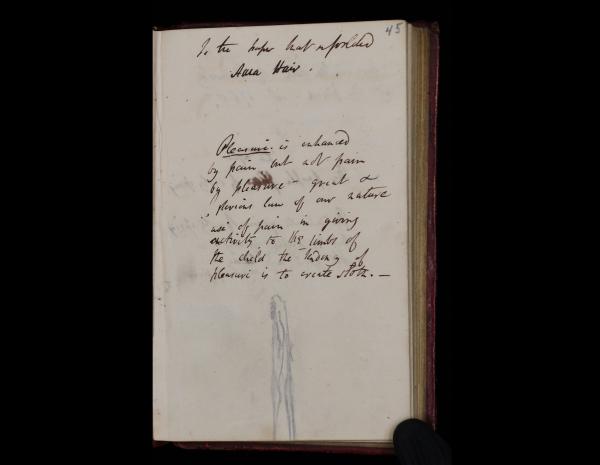 45
To the paper that enfolded
Hair.
Pleasure. is enhanced
by pain but not pain
by pleasure – great &
law of our nature
use of pain in giving
activity to the limbs of
the child the tendency of
pleasure is to create sloth. —